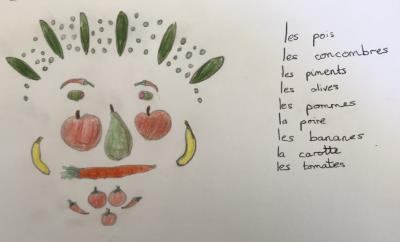 les pois
les concombres
les piments
les olives
les pommes
la poire
les bananes
la carotte
les tomates